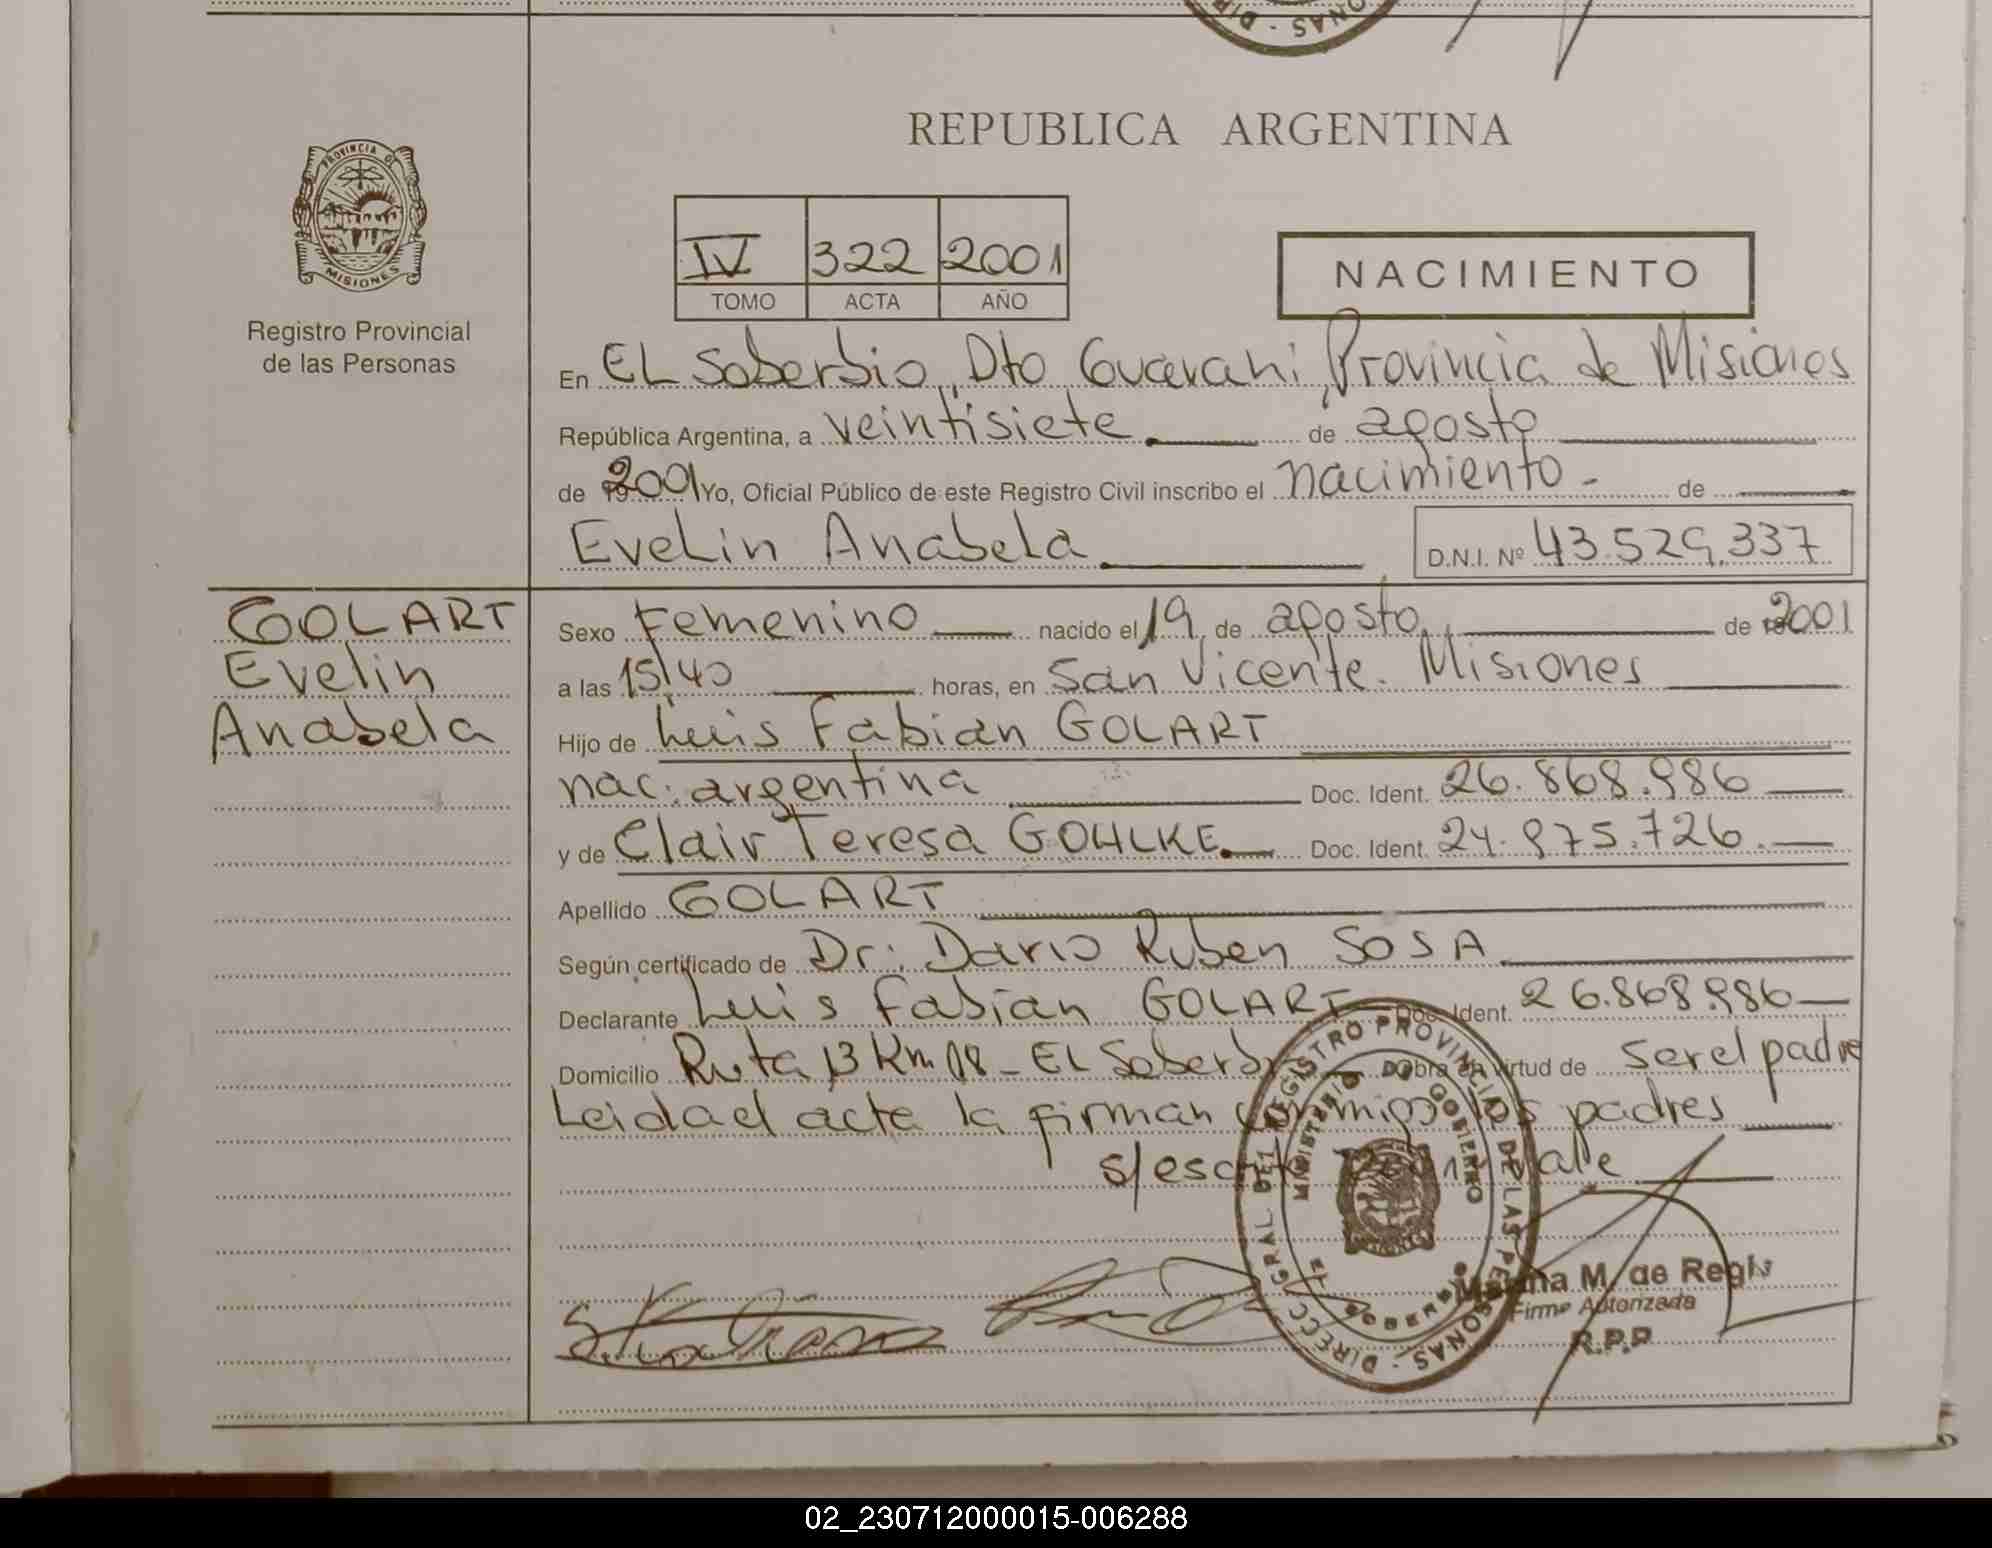 REPUBLICA ARGENTINA
PROVINCIA D
MISIONES
Registro Provincial
de las Personas
IV 322 2001
TOMO ACTA AÑO
NACIMIENTO
En EL Soberbio, Dto Guarani, Provincia de Misiones
República Argentina, a veintisiete de agosto
de 2001 Yo, Oficial Público de este Registro Civil inscribo el nacimiento - de
Evelin Anabela D.N.I. Nº 43.529.337
GOLART
Evelin
Anabela
Sexo Femenino nacido el 19 de agosto de 2001
a las 15,40 horas, en San Vicente. Misiones
Hijo de Luis Fabian GOLART
nac. argentina Doc. Ident. 26.868.986
y de Clair Teresa GOHLKE Doc. Ident. 24.875.726
Apellido GOLART
Según certificado de Dr. Dario Ruben SOSA
Declarante Luis Fabian GOLART Doc. Ident. 26.868.986
Domicilio Ruta 13 Km 18 - EL Soberbio Obra en virtud de ser el padre
Leida el acta la firman conmigo los padres
Vale
DIRECC. GRAL DEL REGISTRO PROVINCIAL DE LAS PERSONAS
MINISTERIO DE GOBIERNO
EL SOBERBIO
M. de Regis
Firma Autorizada
R.P.P
02_230712000015-006288